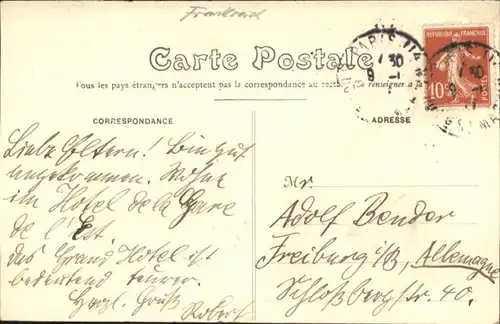 Frankreich
Carte Postale
Tous les pays étrangers n'acceptent pas la correspondance au recto (Se renseigner à
REPUBLIQUE FRANÇAISE
10c
POSTES
PARIS
30
9 -1
CORRESPONDANCE
ADRESSE
Liebe Eltern! Bin gut
angekommen. Wohne
im Hotel de la Gare
de l'Est
das Grand Hotel ist
bedeutend teurer.
Herzl. Gruß
Robert
Mr.
Adolf Bender
Freiburg i/B, Allemagne
Schloßbergstr. 40.